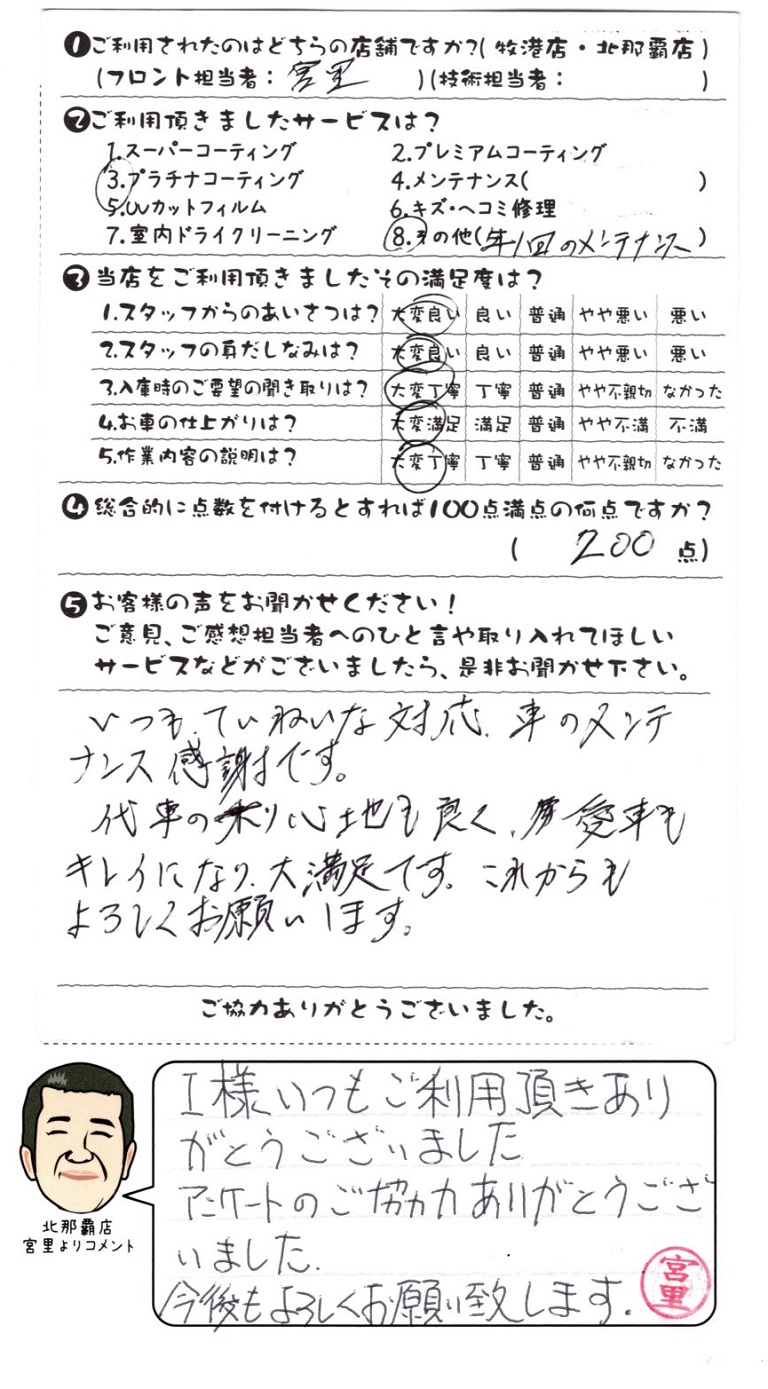 ❶ご利用されたのはどちらの店舗ですか?(牧港店・北那覇店)
(フロント担当者: 宮里 )(技術担当者: )
❷ご利用頂きましたサービスは?
1.スーパーコーティング 2.プレミアムコーティング
3.プラチナコーティング 4.メンテナンス( )
5.UVカットフィルム 6.キズ・ヘコミ修理
7.室内ドライクリーニング 8.その他(年1回のメンテナンス)
❸当店をご利用頂きましたその満足度は?
1.スタッフからのあいさつは? 大変良い 良い 普通 やや悪い 悪い
2.スタッフの身だしなみは? 大変良い 良い 普通 やや悪い 悪い
3.入庫時のご要望の聞き取りは? 大変丁寧 丁寧 普通 やや不親切 なかった
4.お車の仕上がりは? 大変満足 満足 普通 やや不満 不満
5.作業内容の説明は? 大変丁寧 丁寧 普通 やや不親切 なかった
❹総合的に点数を付けるとすれば100点満点の何点ですか?
( 200 点)
❺お客様の声をお聞かせください!
ご意見、ご感想担当者へのひと言や取り入れてほしい
サービスなどがございましたら、是非お聞かせ下さい。
いつも、ていねいな対応、車のメンテ
ナンス感謝です。
代車の乗り心地も良く、愛車も
キレイになり、大満足です。これからも
よろしくお願いします。
ご協力ありがとうございました。
I様いつもご利用頂きあり
がとうございました
アンケートのご協力ありがとうござ
いました.
今後もよろしくお願い致します.
北那覇店
宮里よりコメント
宮里